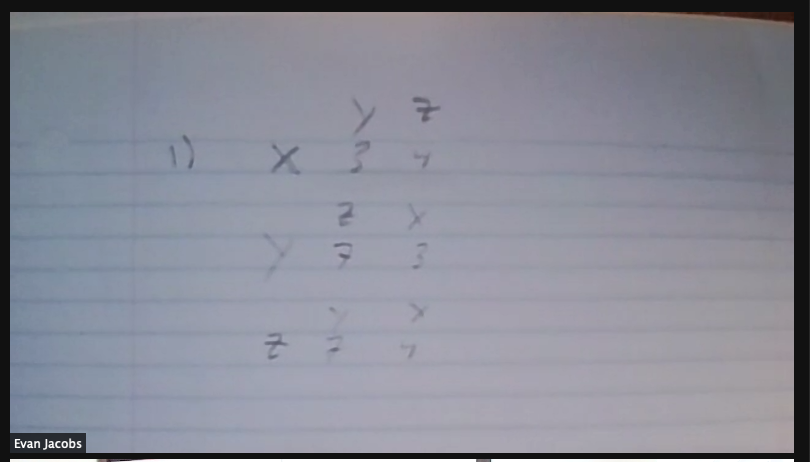 y z
1) X 3 4
z x
y 7 3
y x
z 7 4
Evan Jacobs